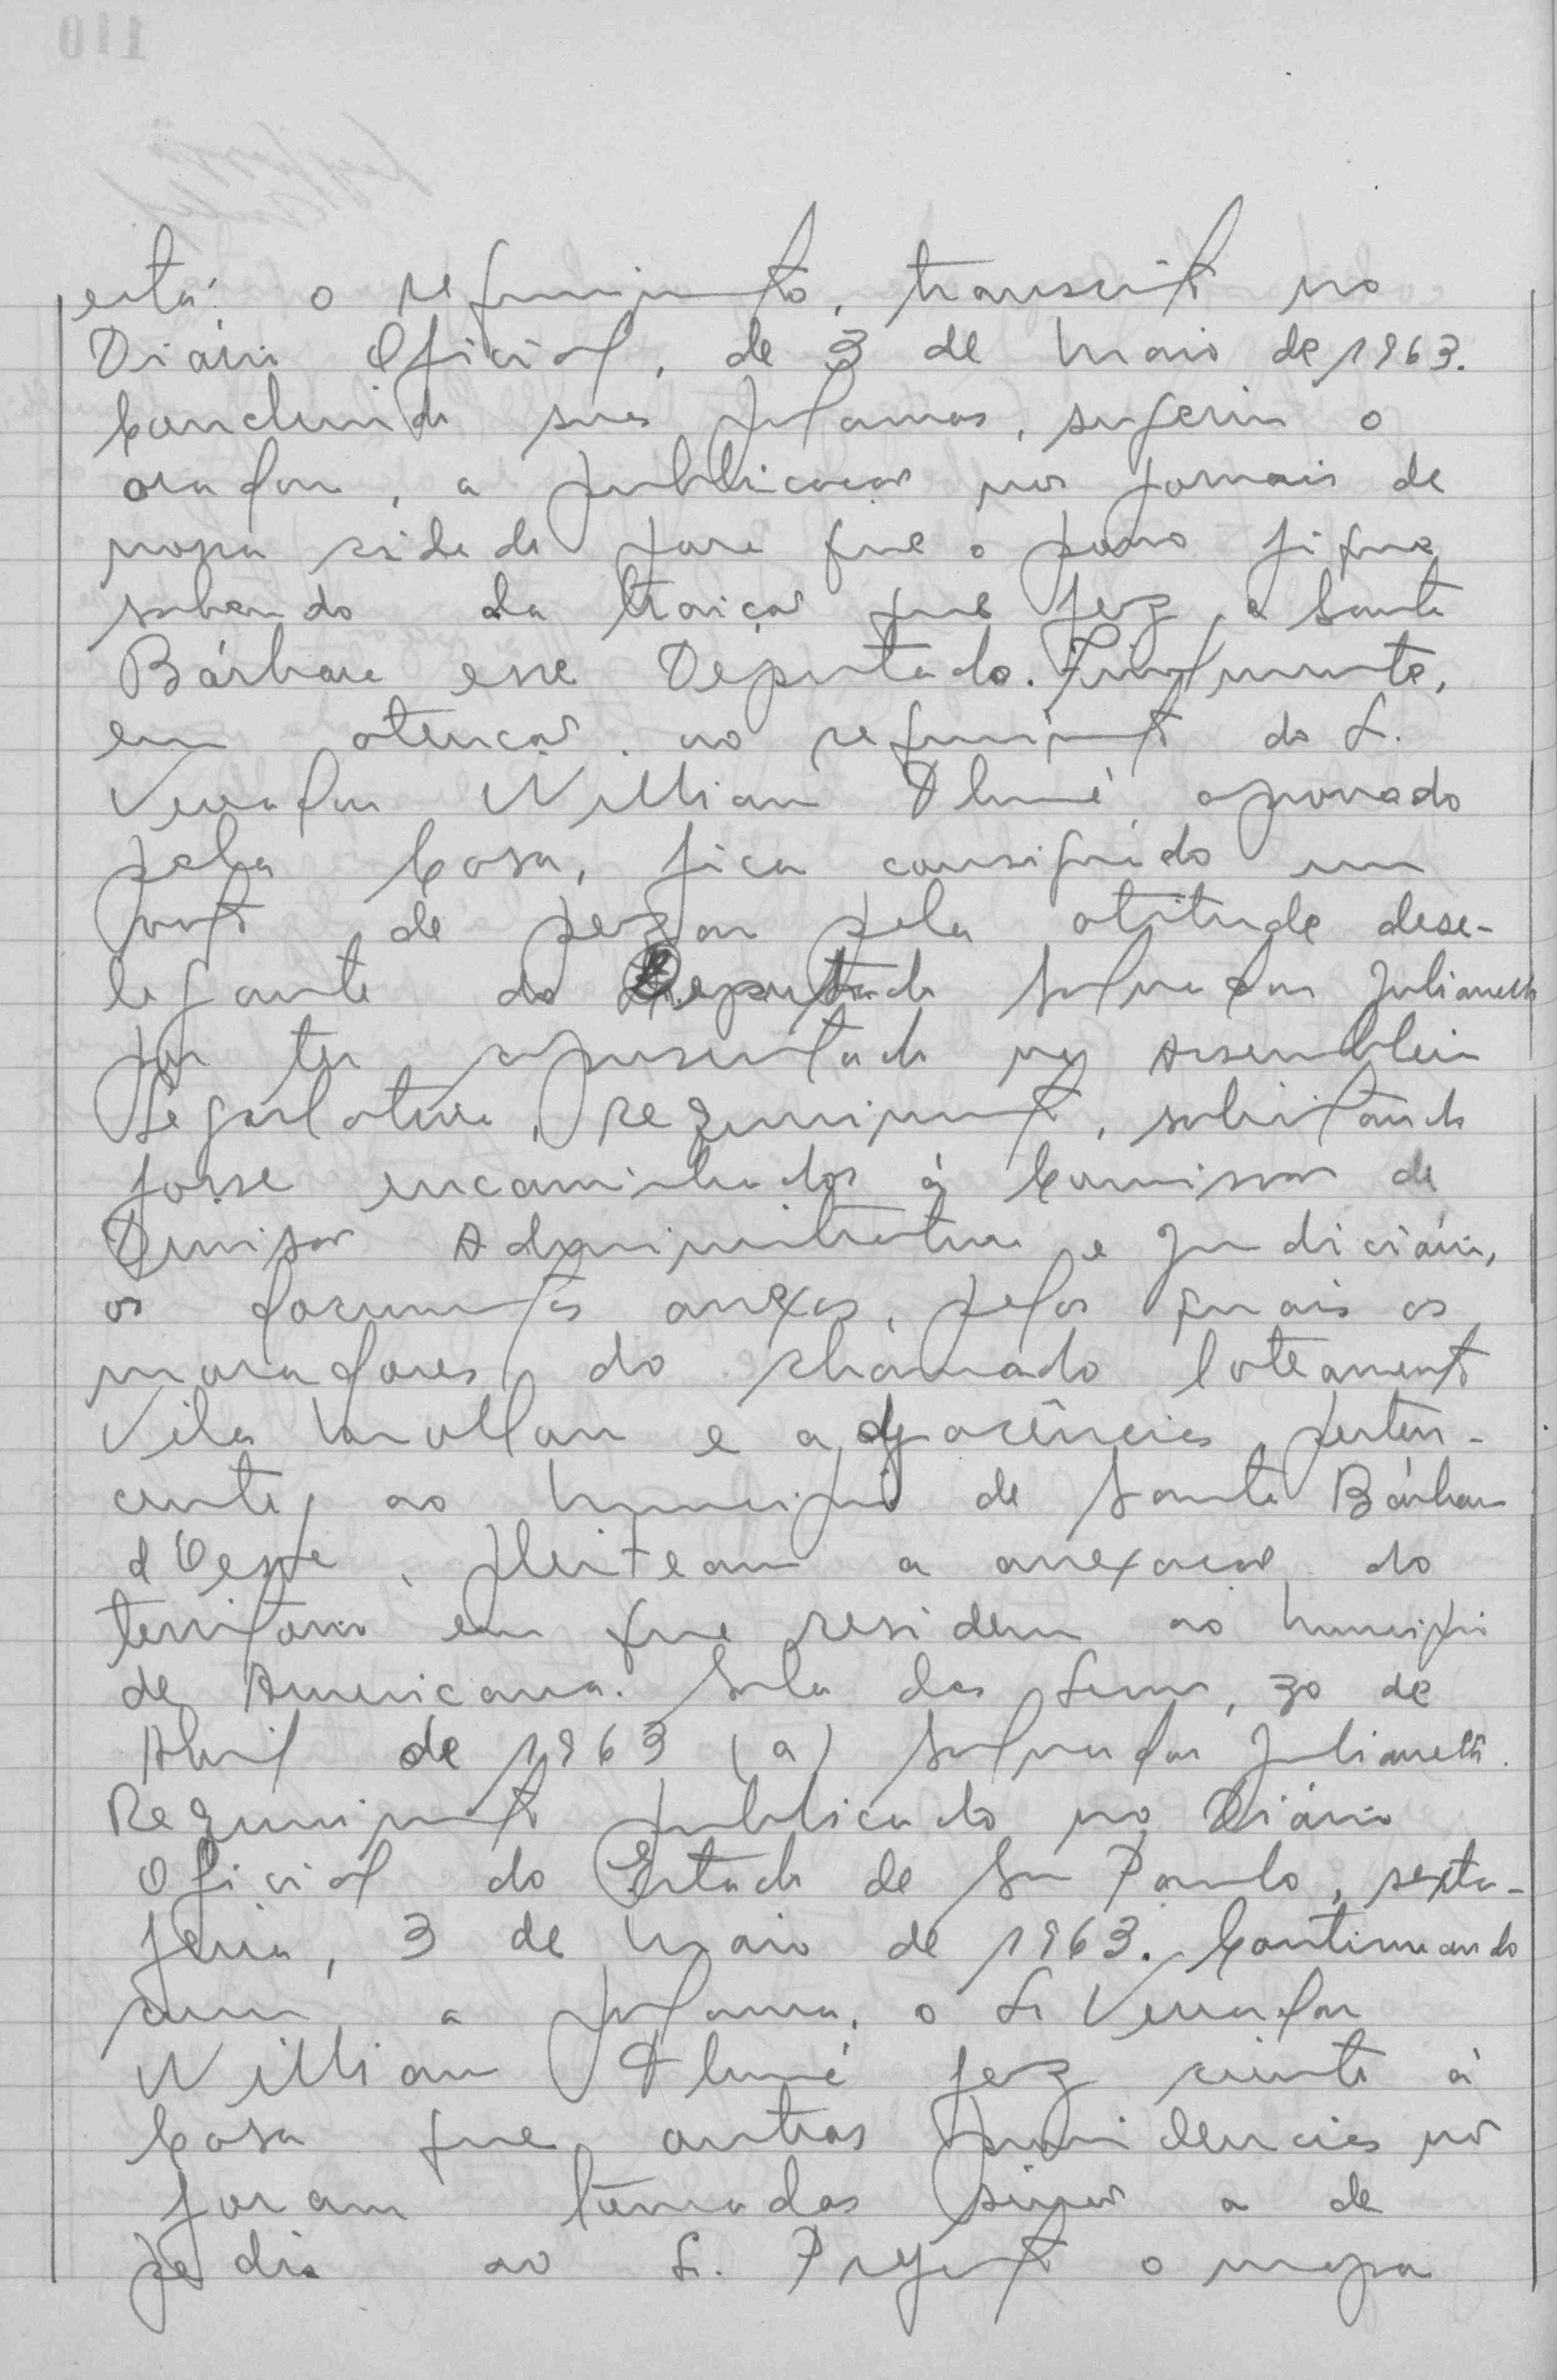 está o requerimento, transcrito no
Diário Oficial, de 3 de Maio de 1963.
Concluindo suas palavras, sugeriu o
orador, a publicação nos jornais de
nossa cidade para que o povo fique
sabendo da traição que fez a Santa
Bárbara esse Deputado. Finalmente,
em atenção ao requerimento do S.
Vereador Willian Alumé aprovado
pela Casa, fica consignado um
voto de pezar pela atitude dese-
legante do Deputado Salvador Julianelli
por ter apresentado na Assembleia
Legislativa, Requerimento, solicitando
fosse encaminhados á Comissão de
Divisão Administrativa e Judiciária,
os documentos anexos, pelos quais os
moradores do chamado loteamento
Vila Mollon e adjacências, perten-
cente ao Municipio de Santa Bárbara
d'Oeste, pleiteam a anexação do
território em que residem ao Municipio
de Americana. Sala das Sessões, 30 de
Abril de 1963 (a) Salvador Julianelli.
Requerimento publicado no Diário
Oficial do Estado de São Paulo, sexta-
feira, 3 de Maio de 1963. Continuando
com a palavra, o Sr Vereador
Willian Alumé fez ciente á
Casa que outras providencias não
foram tomadas sinão a de
pedir ao S. Prefeito o mapa